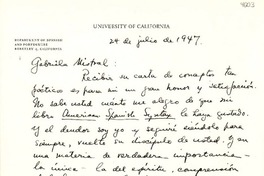 UNIVERSITY OF CALIFORNIA
DEPARTMENT OF SPANISH
AND PORTUGUESE
BERKELEY 4, CALIFORNIA
24 de julio de 1947.
Gabriela Mistral:
Recibir su carta de conceptos tan
poéticos es para mí un gran honor y satisfacción.
No sabe usted cuánto me alegro de que mi
libro American Spanish Syntax le haya gustado.
Y el deudor soy yo y seguiré siéndolo para
siempre, vuelto su discípulo de usted. Y en
una materia de verdadera importancia —
la única — la del espíritu, comprensión